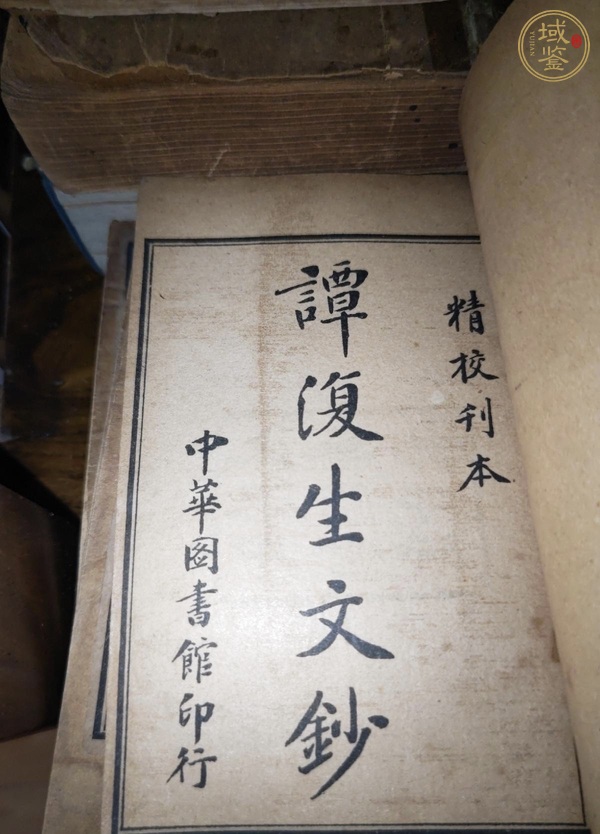 精校刊本
譚復生文鈔
中華圖書館印行
域鑒
YUJIAN